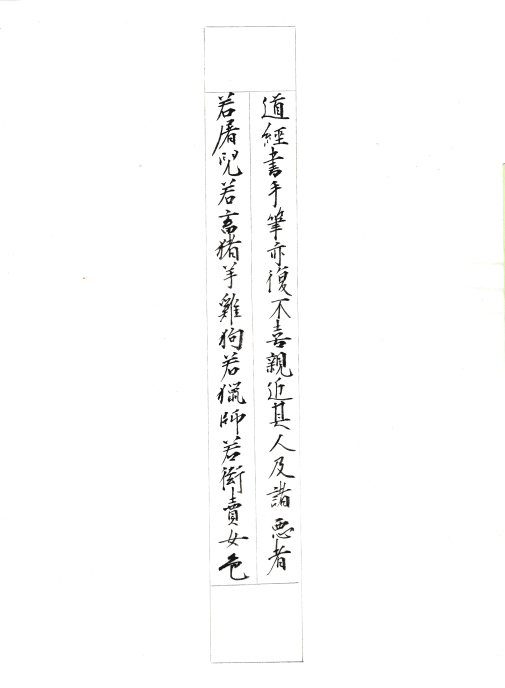 道經書手筆亦復不喜親近其人及諸惡者
若屠兒若畜猪羊雞狗若獵師若衒賣女色